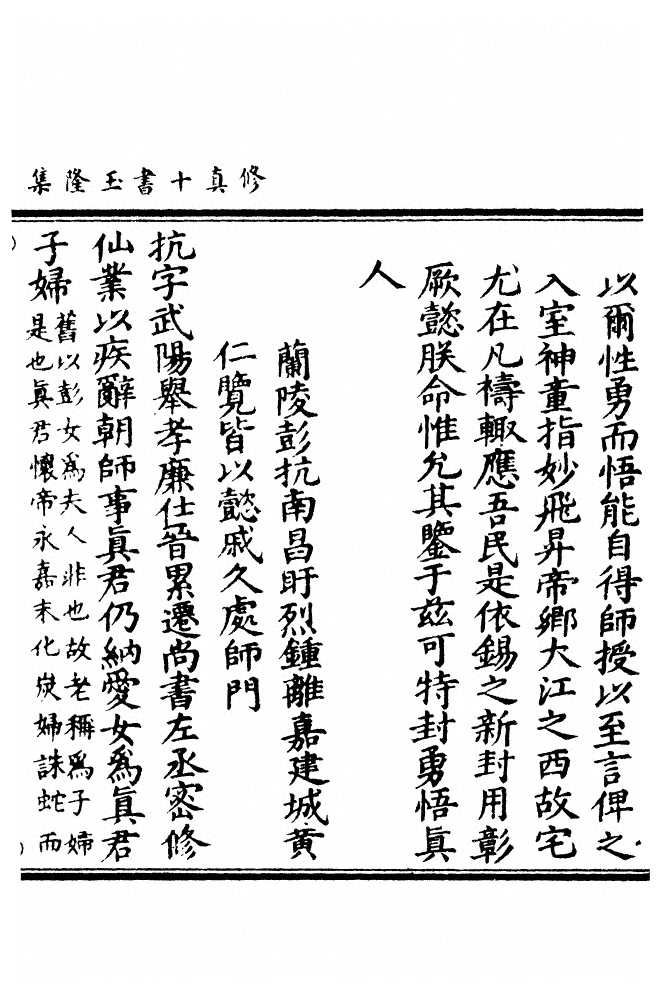 修真十書玉隆集
以爾性勇而悟能自得師授以至言俾之
入室神童指妙飛昇帝鄉大江之西故宅
尤在凡禱輙應吾民是依錫之新封用彰
厥懿朕命惟允其鑒于兹可特封勇悟眞
人
蘭陵彭抗南昌盱烈鍾離嘉建城黄
仁覽皆以懿戚久處師門
抗字武陽舉孝廉仕晉累遷尚書左丞密修
仙業以疾辭朝師事眞君仍納愛女爲眞君
子婦
舊以彭女爲夫人非也故老稱爲子婦
是也眞君懷帝永嘉末化炭婦誅蛇而